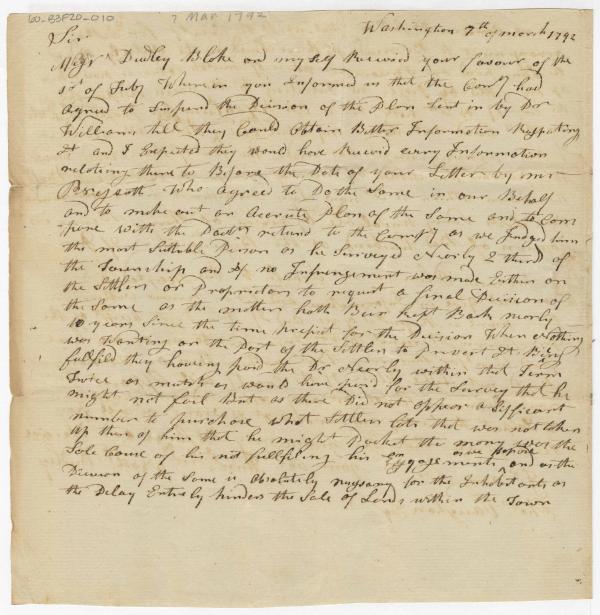 60-B3F20-010
7 Mar 1792
Washington 7th of march 1792
Sir
Majr Dudley Blake and my self Receivd your favour of the
1st of Feby Wherein you Informed us that the Comy had
Agreed to Suspend the Division of the Plan Sent in by Dr
Williams till they Could Obtain Better Information Respecting
It and I Expected they would have Receivd every Information
relateing there to Before the Date of your Letter by mr
Prescott Who Agreed to Do the Same in our Behalf
and to make out an Accrute Plan of the Same and to Com
pare with the Doctrs return to the Comy as we Judged him
the most Suttible Person as he Surveyed Nearly 2 thirds of
the Township and If no Infrengement was made Either on
the Settlers or Proprietors to request a final Decision of
the Same as the matters hath Bein kept Back nearly
10 years Since the time prefixt for the Decision When Nothing
was Wanting on the Part of the Settlers to Prevent It Being
fullfild they haveing paid the Dr Nearly within that Term
Twice as mutch as would have paid for the Survey that he
might not fail But as there Did not appear a Sifficient
number to purchase what Settlers lots that was not taken
up then of him that he might Pocket the mony was the
Sole Cause of his not fullfiling his engagements as we suppose and as the
Decision of the Same is absolutely nessary for the Inhabitants as
the Delay Entirely hinders the Sale of Lands within the Town